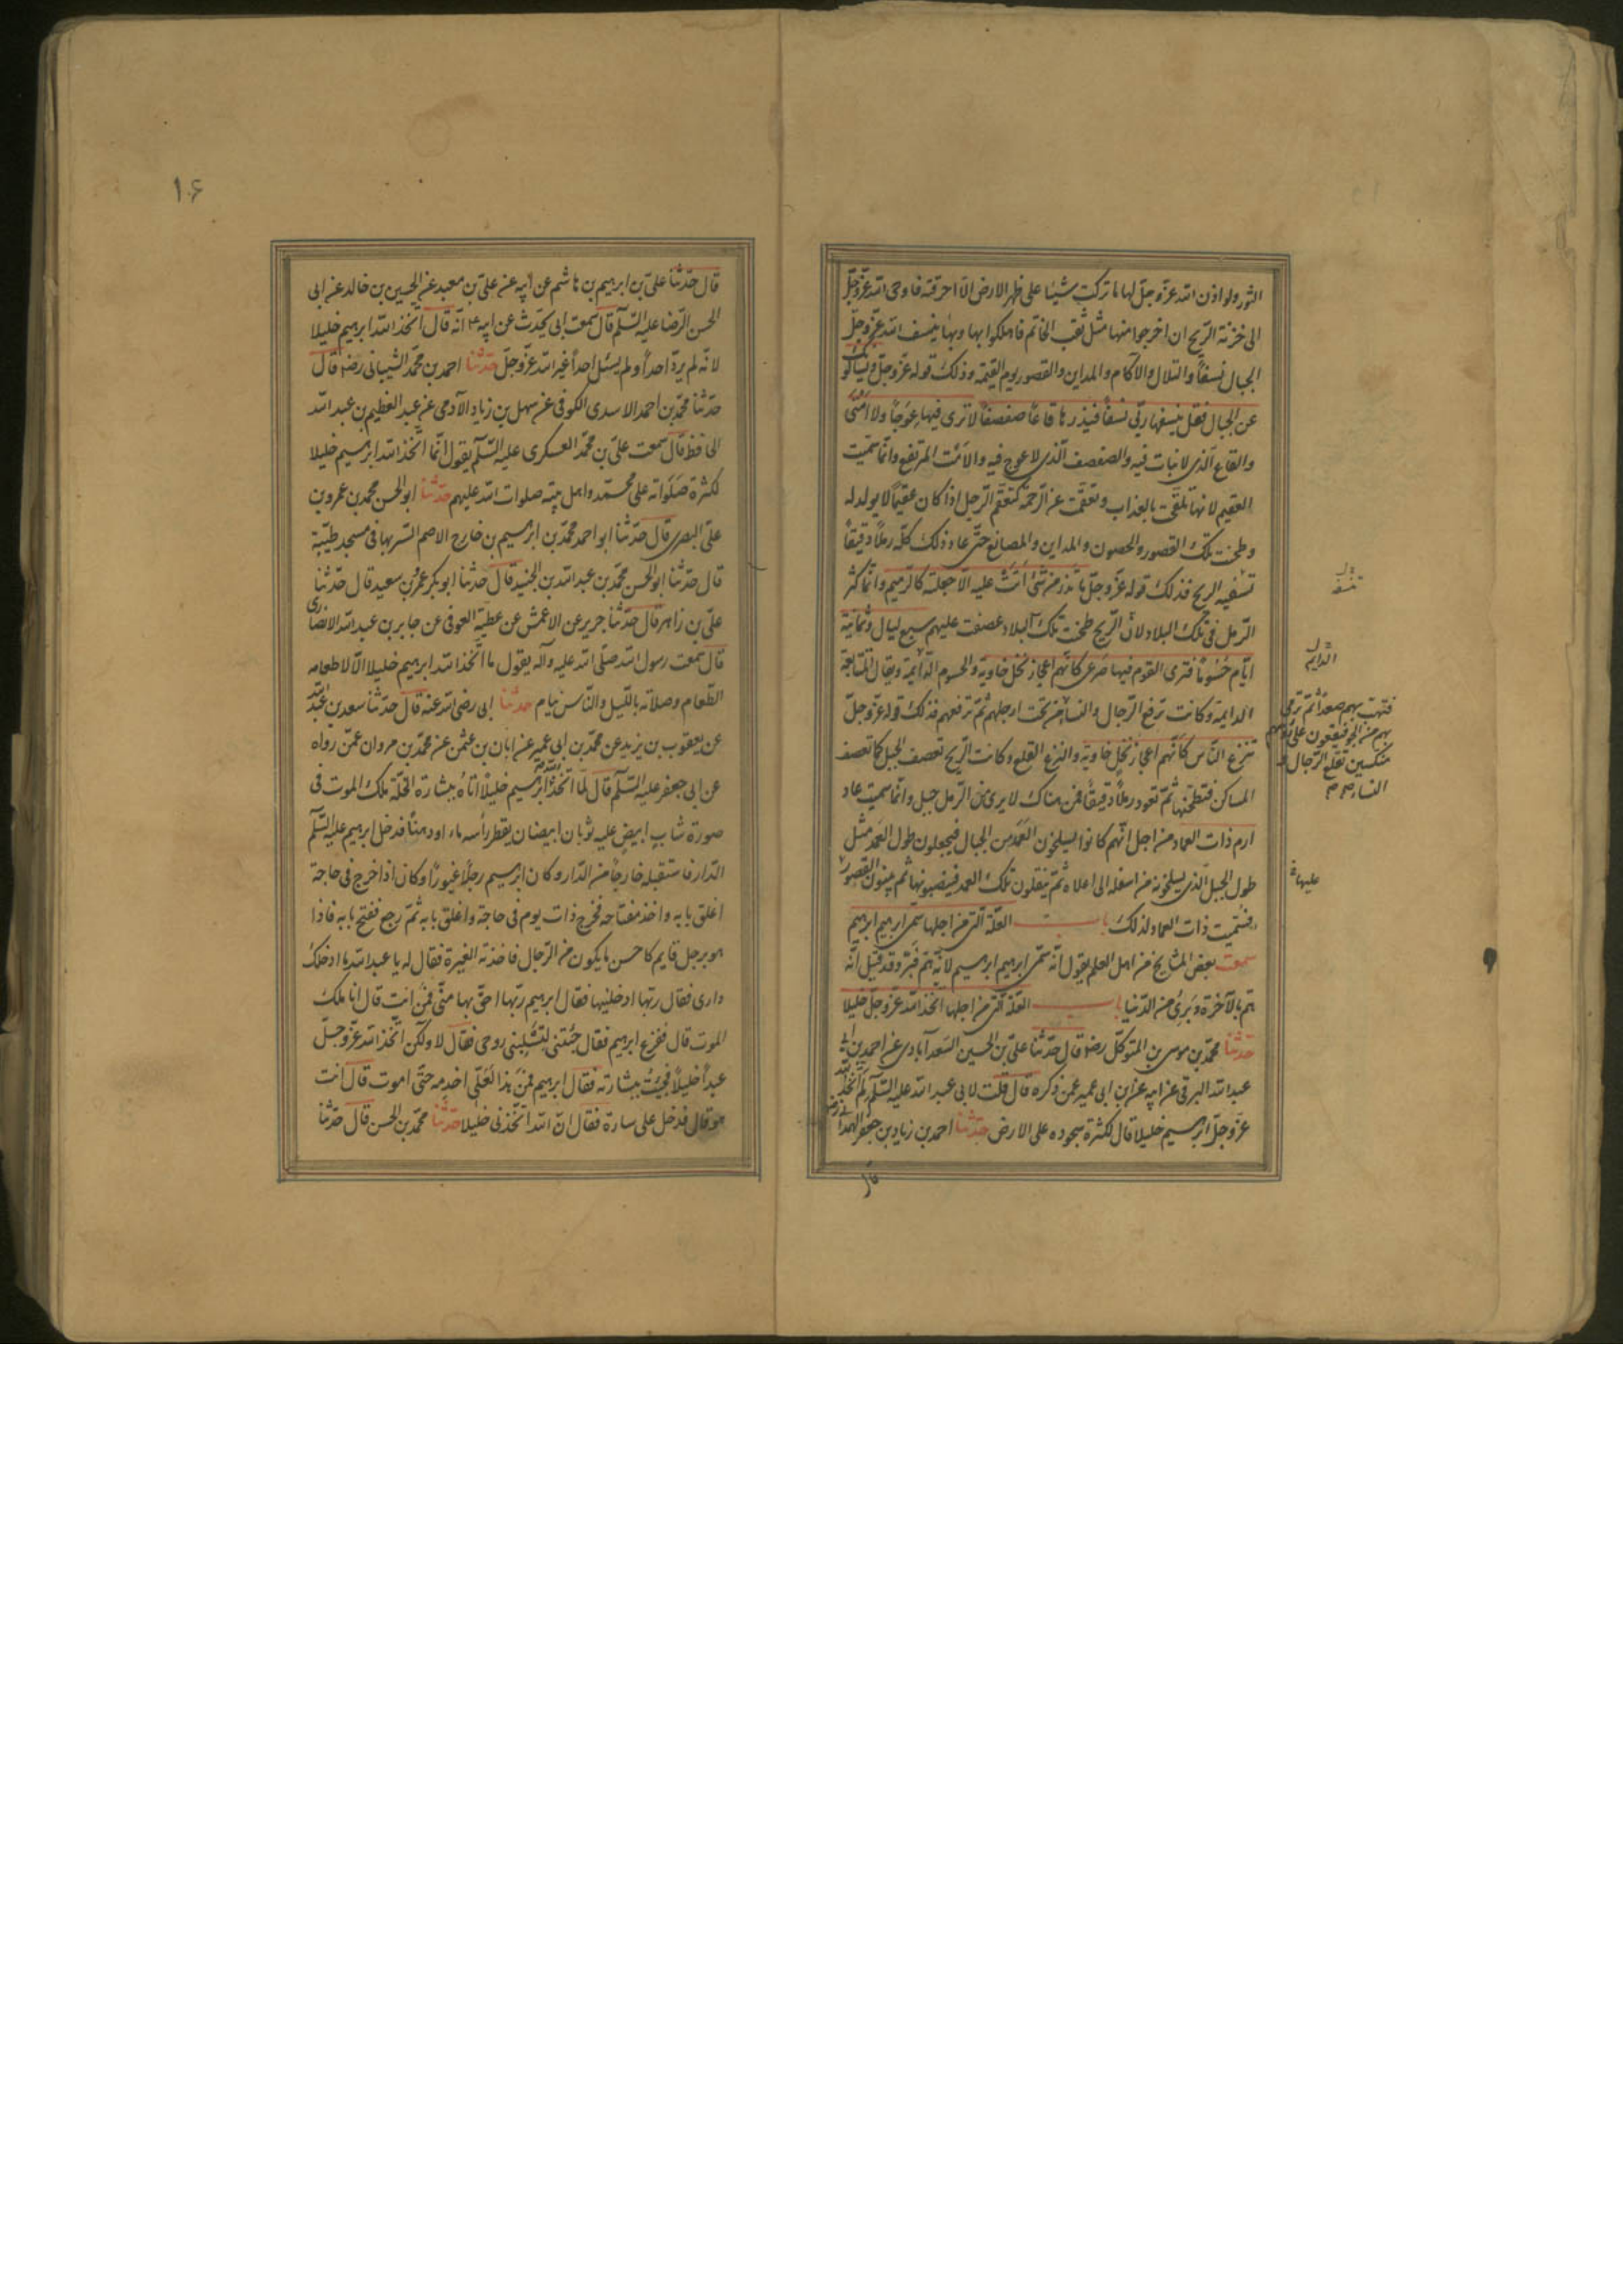 الثور ولو اذن الله عزّ وجلّ لها ما تركت شيئا على ظهر الارض الّا احرقته فاوحى الله عزّ وجلّ
الى خزنة الرّيح ان اخرجوا منها مثل ثقب الخاتم فاهلكوا بها وبها ينسف الله عزّ وجلّ
الجبال نسفاً والتلال والآكام والمداين والقصور يوم القيمة وذلك قوله عزّ وجلّ ويسألونك
عن الجبال فقل ينسفها ربّي نسفاً فيذرها قاعاً صفصفاً لا ترى فيها عوجاً ولا امتى
والقاع الّذى لا نبات فيه والصفصف الّذى لا عوج فيه والامت المرتفع وانّما سمّيت
العقيم لانها تلقّحت بالعذاب وتعقّمت عن الرّحمة كتعقّم الرّجل اذا كان عقيماً لا يولد له
وطحنت تلك القصور والحصون والمداين والمصانع حتّى عاد ذلك كلّه رملاً دقيقاً
تسفيه الريح فذلك قوله عزّ وجلّ ما تذر من شئ اتت عليه الّا جعلته كالرّميم وانّما كثر
الرّمل فى تلك البلاد لانّ الرّيح طحنت تلك البلاد وعصفت عليهم سبع ليال وثمانية
ايّام حسوماً فترى القوم فيها صرعى كانّهم اعجاز نخل خاوية والحسوم الدّايمة ويقال المتتابعة
الدايمة وكانت ترفع الرّجال والنساء من تحت ارجلهم ثمّ ترفعهم فذلك قوله عزّ وجلّ
تنزع النّاس كانّهم اعجاز نخل خاوية والنزع القلع وكانت الرّيح تعصف الجبل كما تعصف
المساكن فتطحنها ثمّ تعود رملاً دقيقاً فمن هناك لا يرى فى الرّمل جبل وانّما سميت عاد
ارم ذات العماد من اجل انّهم كانوا يسلخون العمد من الجبال فيجعلون طول العمد مثل
طول الجبل الّذى يسلخونه من اسفله الى اعلاه ثمّ ينقلون تلك العمد فينصبونها ثم يبنون القصور
فسُمّيت ذات العماد لذلك باب العلّة الّتى من اجلها سمى ابرهيم ابرهيم
سمعت بعض المشايخ من اهل العلم يقول انّه سمّى ابرهيم ابرهيم لانّه همّ فبرّ وقد قيل انّه
همّ بالآخرة وبرئ من الدّنيا باب العلّة الّتى من اجلها اتّخذ الله عزّ وجلّ خليلا
حدّثنا محمّد بن موسى بن المتوكّل رضه قال حدّثنا علىّ بن الحسين السعدآبادى عن احمد بن ابى
عبد الله البرقى عن ابيه عن ابن ابى عمير عمّن ذكره قال قلت لابى عبد الله عليه السّلم لم اتّخذ الله
عزّ وجلّ ابرهيم خليلا قال لكثرة سجوده على الارض حدّثنا احمد بن زياد بن جعفر الهمدانى رضه
قال
تنسف
الدايم
فتهب بهم صعداً ثم ترمى
بهم من الجوّ فيقعون على رؤسهم
منكسين تقلع الرّجال و
النساء
عليها
١٠۶
قال حدّثنا علىّ بن ابرهيم بن هاشم عن ابيه عن علىّ بن معبد عن الحسين بن خالد عن ابى
الحسن الرّضا عليه السّلم قال سمعت ابى يحدّث عن ابيه ع انّه قال اتّخذ الله ابرهيم خليلا
لانّه لم يردّ احداً ولم يسئل احداً غير الله عزّ وجلّ حدّثنا احمد بن محمّد الشيبانى رضه قال
حدّثنا محمّد بن احمد الاسدى الكوفى عن سهل بن زياد الآدمى عن عبد العظيم بن عبد الله
الحافظ قال سمعت علىّ بن محمّد العسكرى عليه السّلم يقول انّما اتّخذ الله ابرهيم خليلا
لكثرة صلواته على محمّد واهل بيته صلوات الله عليهم حدّثنا ابو الحسن محمد بن عمرو بن
علىّ البصرى قال حدّثنا ابو احمد محمّد بن ابرهيم بن خارج الاصم السّربها فى مسجد طيّبة
قال حدّثنا ابو الحسن محمّد بن عبد الله بن الجنيد قال حدثنا ابو بكر عمرو بن سعيد قال حدّثنا
علىّ بن زاهر قال حدّثنا جرير عن الاعمش عن عطيّة العوفى عن جابر بن عبد الله الانصارى
قال سمعت رسول الله صلّى الله عليه وآله يقول ما اتّخذ الله ابرهيم خليلا الّا لاطعامه
الطّعام وصلاته باللّيل والنّاس نيام حدثنا ابى رضى الله عنه قال حدّثنا سعد بن عبد الله
عن يعقوب بن يزيد عن محمّد بن ابى عمير عن ابان بن عثمن عن محمّد بن مروان عمّن رواه
عن ابى جعفر عليه السّلم قال لمّا اتّخذ الله ابرهيم خليلاً اتاه ببشارة الخلّة ملك الموت فى
صورة شاب ابيض عليه ثوبان ابيضان يقطر رأسه ماء او دهناً فدخل ابرهيم عليه السّلم
الدّار فاستقبله خارجاً من الدّار وكان ابرهيم رجلاً غيوراً وكان اذا خرج فى حاجة
اغلق بابه واخذ مفتاحه فخرج ذات يوم فى حاجة واغلق بابه ثمّ رجع ففتح بابه فاذا
هو برجل قايم كاحسن ما يكون من الرّجال فاخذته الغيرة فقال له يا عبد الله ما ادخلك
دارى فقال ربّها ادخلنيها فقال ابرهيم ربّها احقّ بها منّى فمن انت قال انا ملك
الموت قال ففزع ابرهيم فقال جئتنى لتسلبنى روحى فقال لا ولكن اتّخذ الله عزّ وجلّ
عبداً خليلاً فجئت ببشارته فقال ابرهيم فمن هذا لعلّى اخدمه حتّى اموت قال انت
هو قال فدخل على سارة فقال انّ الله اتّخذنى خليلا حدّثنا محمّد بن الحسن قال حدّثنا